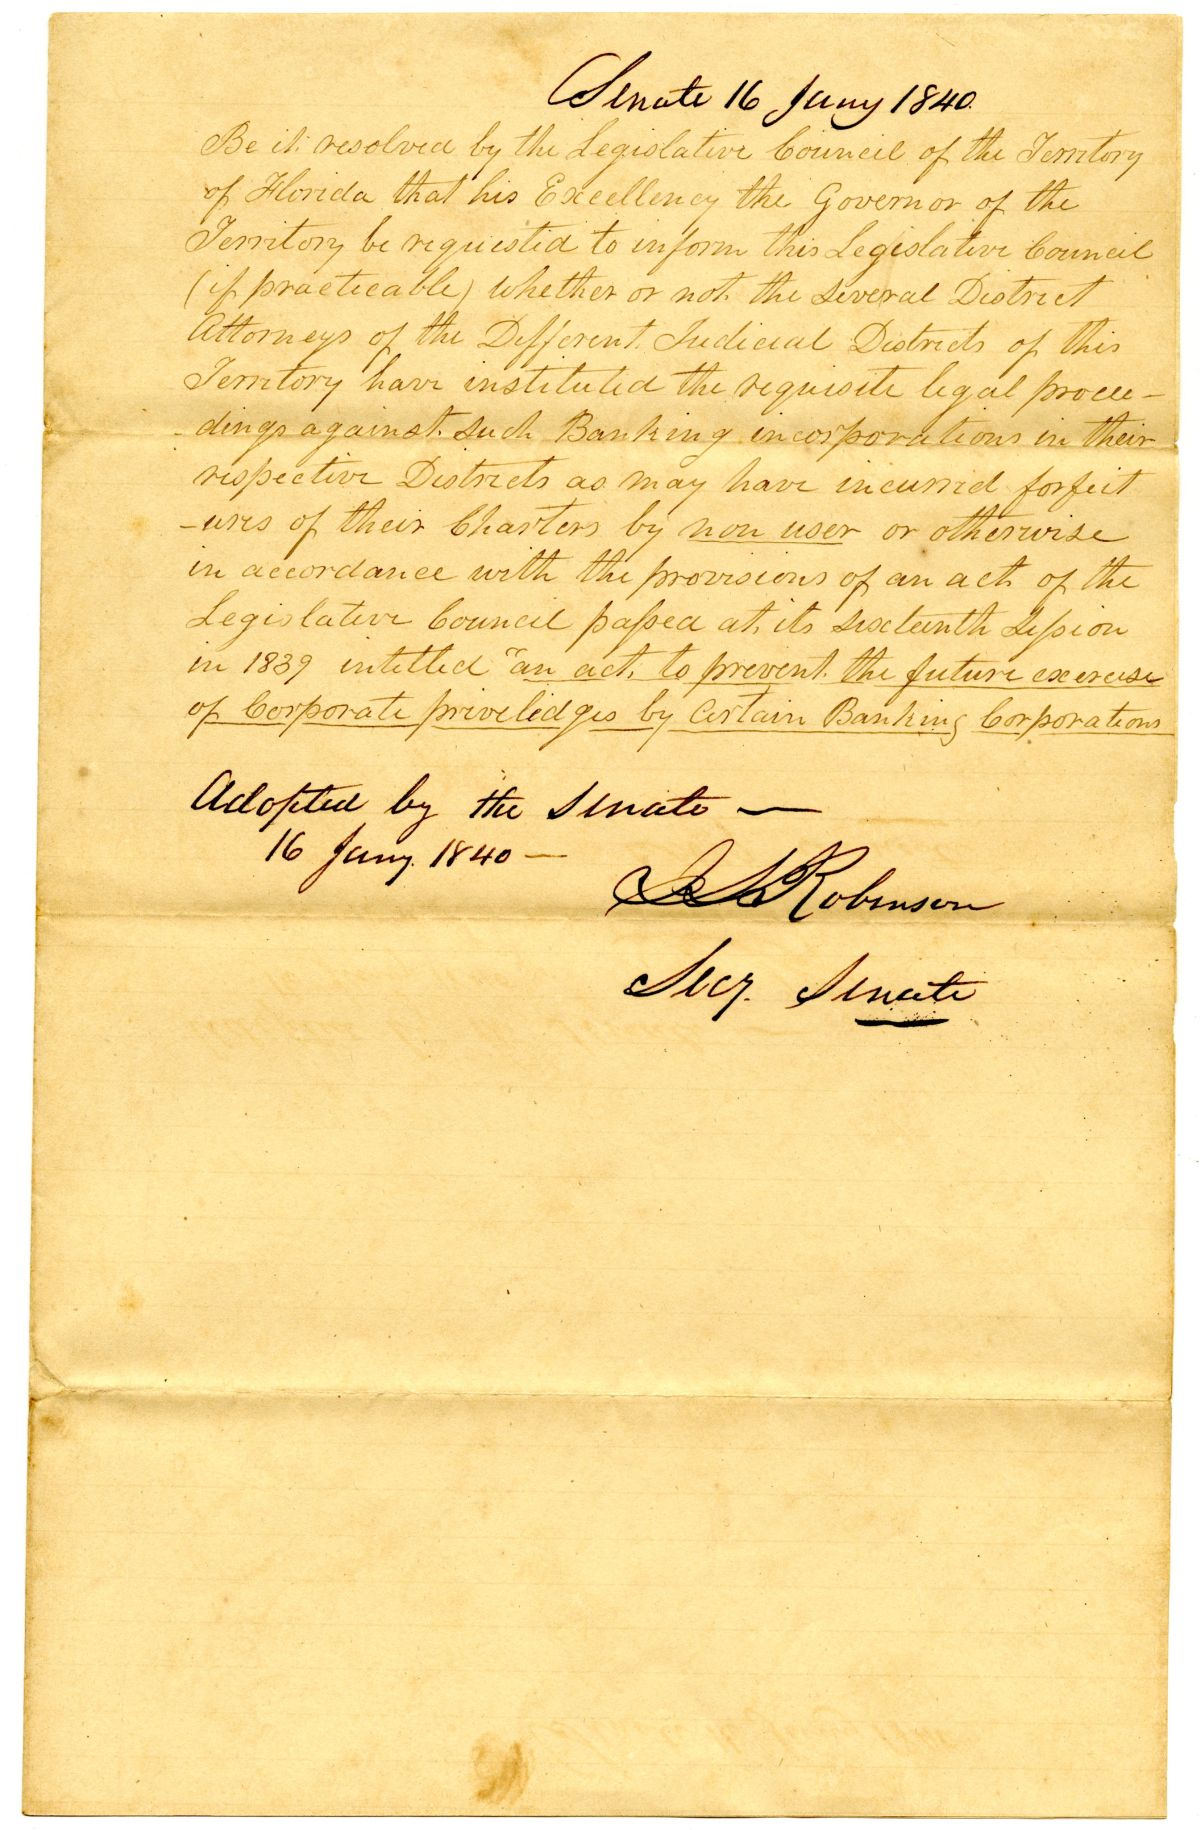 Senate 16 Jany 1840.
Be it resolved by the Legislative Council of the Territory
of Florida that his Excellency the Governor of the
Territory be requested to inform this Legislative Council
(if practicable) whether or not the several District
Attorneys of the Different Judicial Districts of this
Territory have instituted the requisite legal procee-
dings against such Banking incorporations in their
respective Districts as may have incurred forfeit
-ures of their Charters by non user or otherwise
in accordance with the provisions of an act of the
Legislative Council passed at its sixteenth Session
in 1839 intitled "an act to prevent the future exercise
of Corporate priveledges by Certain Banking Corporations
Adopted by the Senate —
16 Jany. 1840 —
Robinson
Secy. Senate